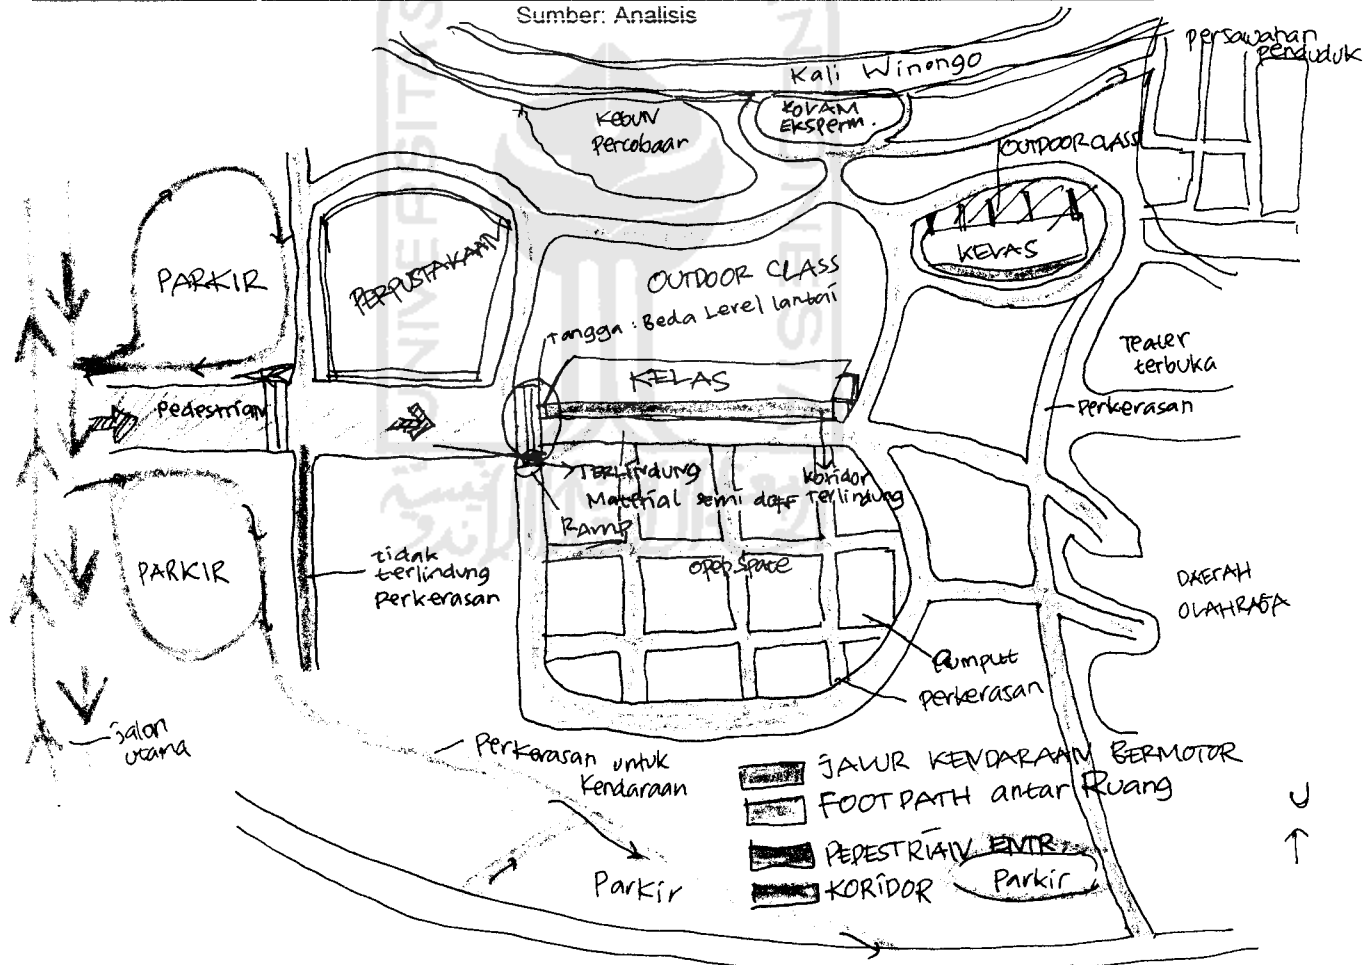 Sumber: Analisis
Kali Winongo
persawahan
penduduk
KEBUN
percobaan
KOLAM
EKSPERM.
OUTDOOR CLASS
KELAS
PARKIR
PERPUSTAKAAN
OUTDOOR CLASS
tangga : Beda Level lantai
KELAS
Teater
terbuka
Perkerasan
Pedestrian
TERLINDUNG
Material semi doff
Ramp
koridor
Terlindung
PARKIR
tidak
terlindung
perkerasan
open space
DAERAH
OLAHRAGA
Rumput
perkerasan
jalan
utama
Perkerasan untuk
Kendaraan
JALUR KENDARAAN BERMOTOR
FOOTPATH antar Ruang
PEDESTRIAN ENTR
KORIDOR
Parkir
Parkir
U
UNIVERSITAS